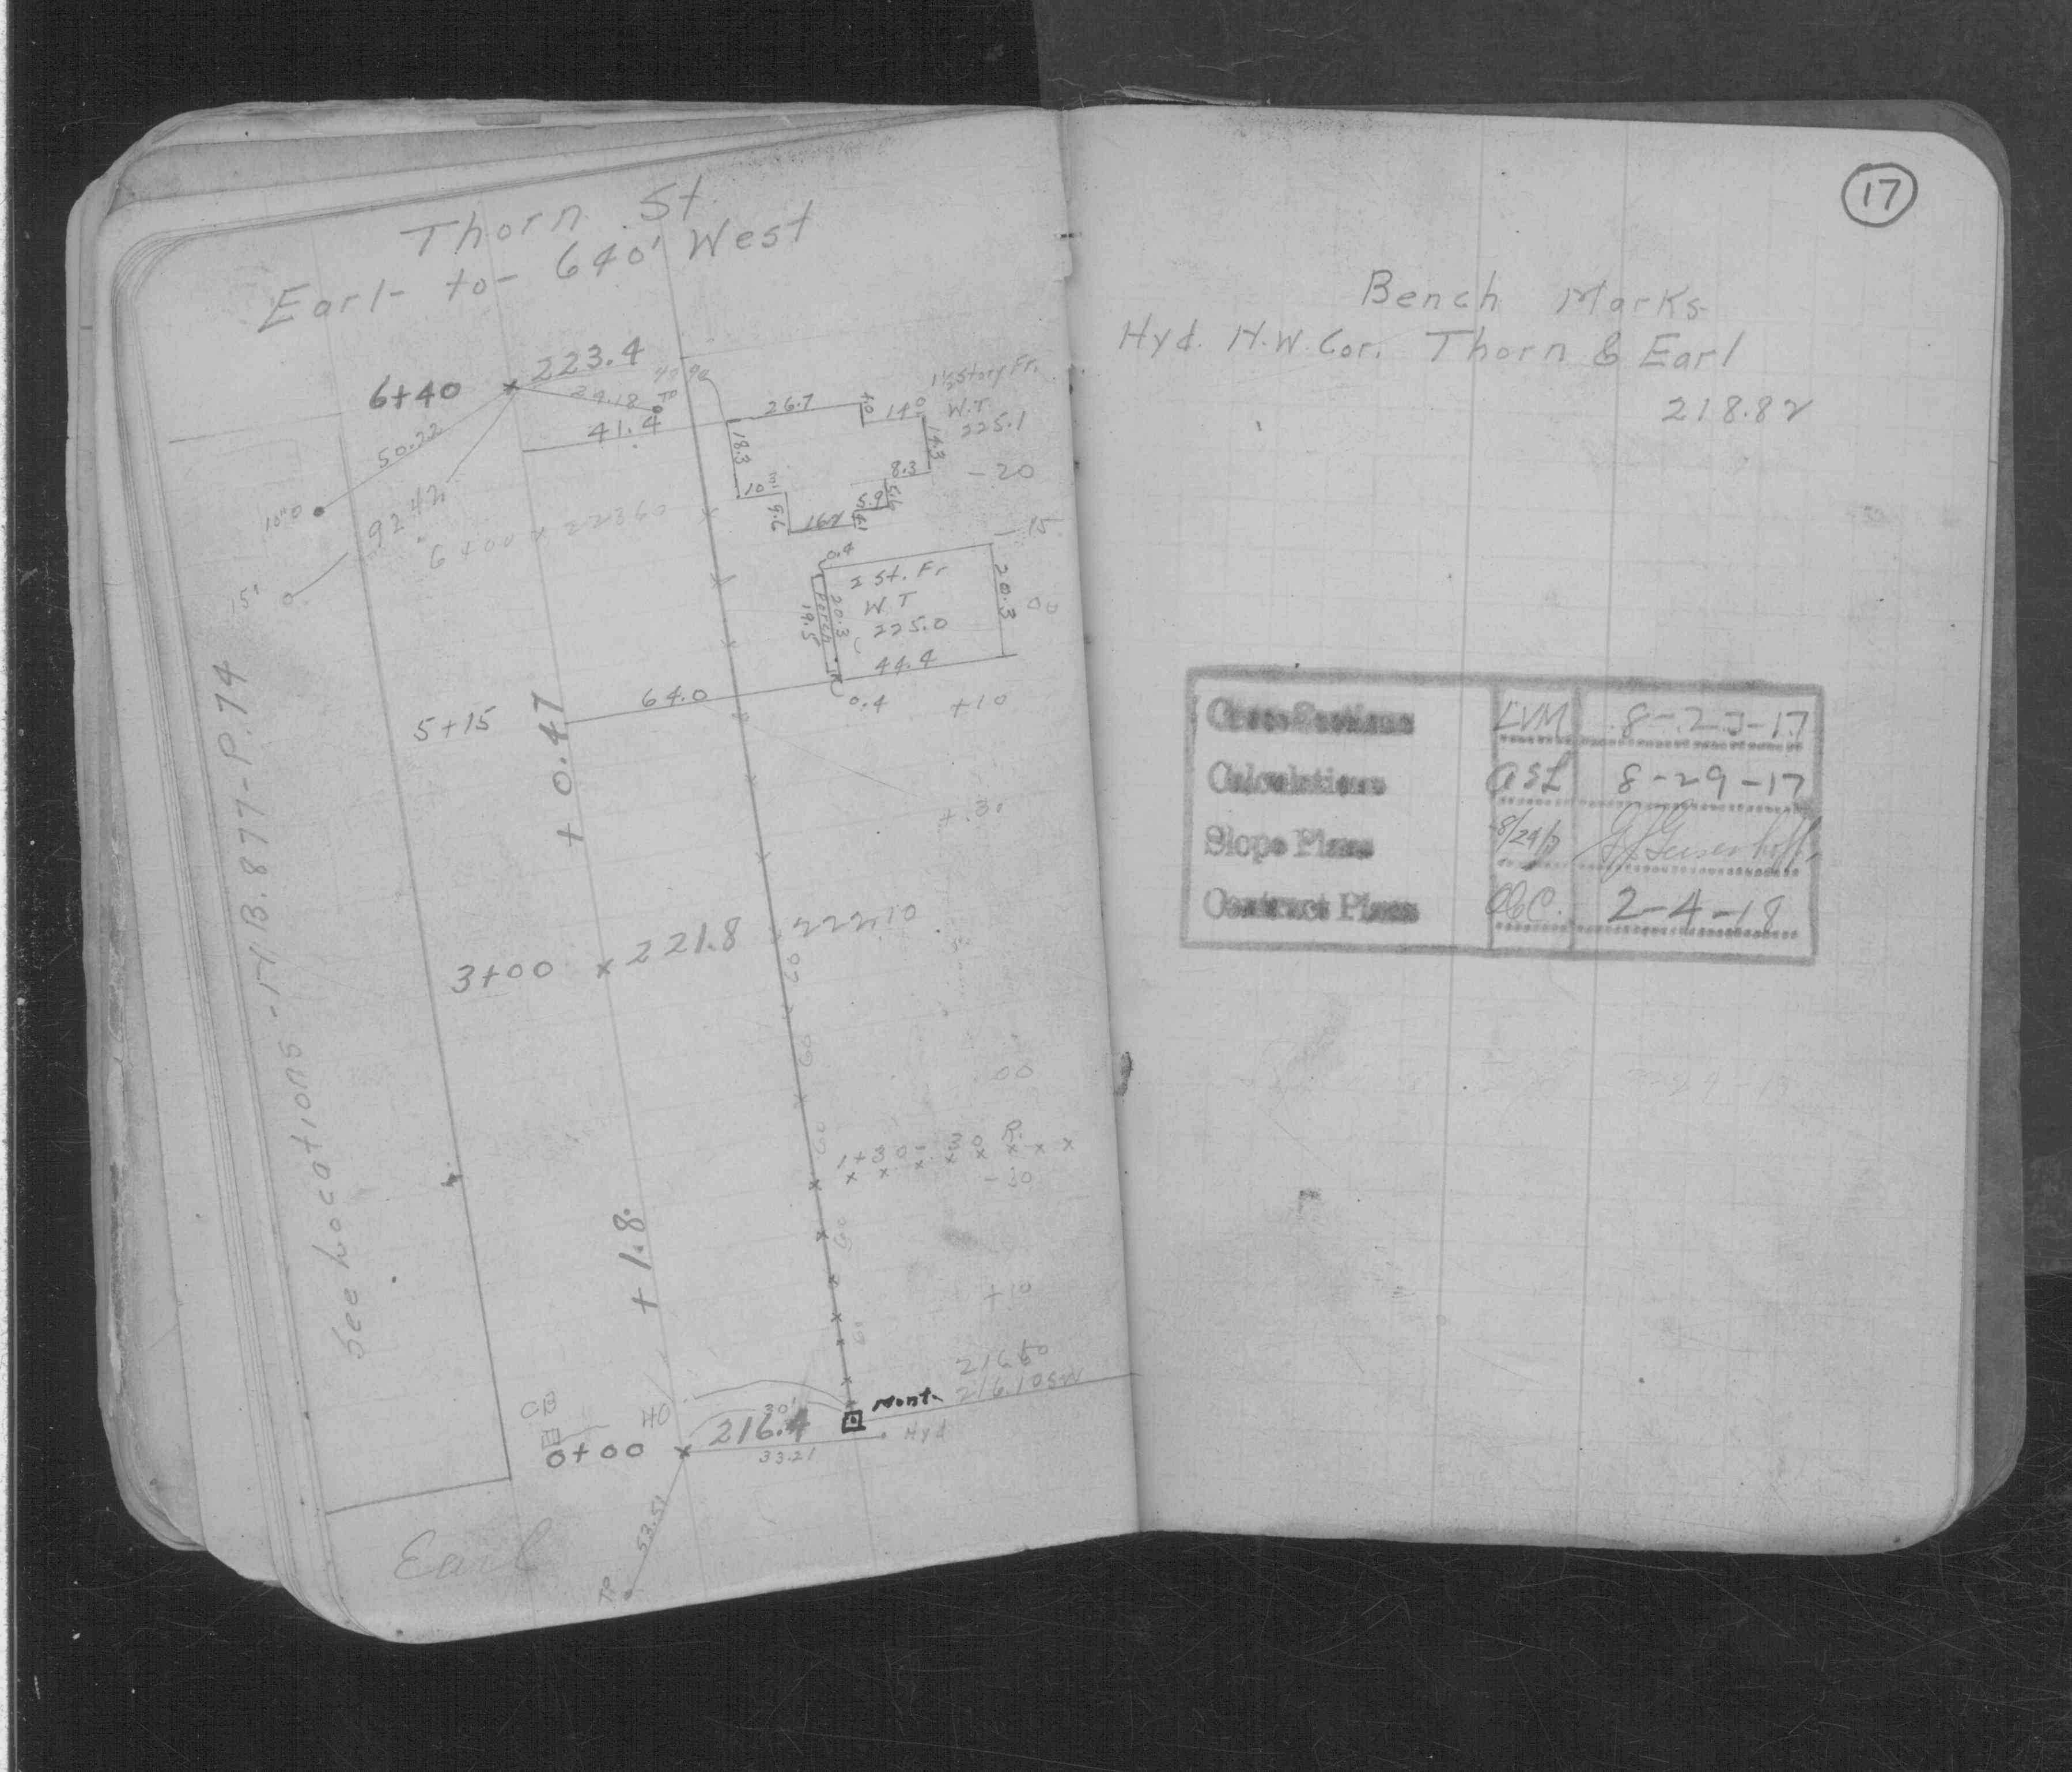 Thorn St.
Earl- to- 640' West
6+40 223.4
29.18
41.4
50.22
10"0
15"
6+00 x 22260
26.7
14
14.3
18.3
10
9.6
162
5.9
5.6
8.3
1½ Story Fr.
W.T.
225.1
-20
-15
0.4
2 St. Fr
W T
225.0
44.4
20.3
20.3
Porch
19.5
0.4
00
5+15 64.0
+10
+0.47
+.30
3+00 x 221.8 222.10
60
60
60
00
1+30 - 30 R.
-30
60
+1.8
+10
60
216.60
216.10 SW
CB
40
30'
Mont.
0+00 216.4
33.21
Hyd
53.51
TP
Earl
See Locations - N.B. 877-P.74
17
Bench Marks
Hyd. N.W. Cor. Thorn & Earl
218.82
Cross Sections LVM 8-23-17
Calculations ASL 8-29-17
Slope Plans 8/24/17
Contract Plans 2-4-18